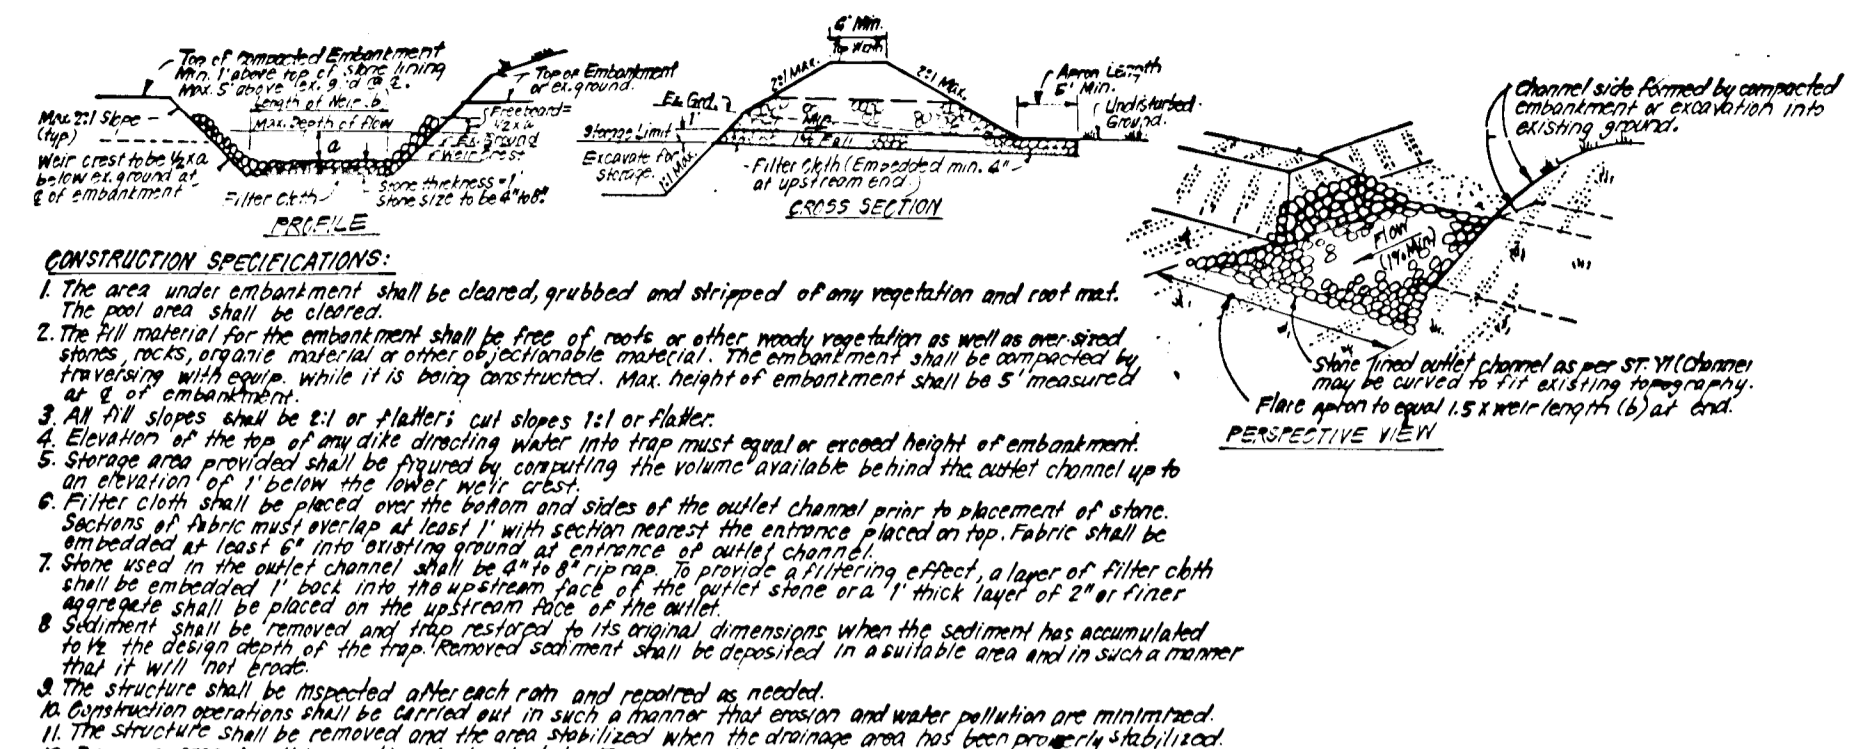 Top of Compacted Embankment
Min. 1' above top of stone lining
Max. 5' above ex. g'd @ ℄.
Length of Weir b
Max. Depth of flow
Max 2:1 Slope
(typ)
Weir crest to be ½ x a
below ex. ground at
℄ of embankment
a
Top of Embankment
or ex. ground.
Freeboard=
½ x a
Ex. Ground
Weir Crest
Filter Cloth
Stone thickness = 1'
Stone size to be 4" to 8".
PROFILE
6' Min.
Top Width
2:1 Max.
2:1 Max.
Ex. Grd.
1'
Storage Limit
Excavate for
storage.
1:1 Max.
Apron Length
5' Min.
Undisturbed
Ground.
Filter Cloth (Embedded min. 4"
at upstream end)
CROSS SECTION
Channel side formed by compacted
embankment or excavation into
existing ground.
FLOW
(1% Min)
Stone lined outlet channel as per ST. VI (Channel
may be curved to fit existing topography.
Flare apron to equal 1.5 x weir length (b) at end.
PERSPECTIVE VIEW
CONSTRUCTION SPECIFICATIONS:
1. The area under embankment shall be cleared, grubbed and stripped of any vegetation and root mat.
The pool area shall be cleared.
2. The fill material for the embankment shall be free of roots or other woody vegetation as well as over-sized
stones, rocks, organic material or other objectionable material. The embankment shall be compacted by
traversing with equip. while it is being constructed. Max. height of embankment shall be 5' measured
at ℄ of embankment.
3. All fill slopes shall be 2:1 or flatter; cut slopes 1:1 or flatter.
4. Elevation of the top of any dike directing water into trap must equal or exceed height of embankment.
5. Storage area provided shall be figured by computing the volume available behind the outlet channel up to
an elevation of 1' below the lower weir crest.
6. Filter cloth shall be placed over the bottom and sides of the outlet channel prior to placement of stone.
Sections of fabric must overlap at least 1' with section nearest the entrance placed on top. Fabric shall be
embedded at least 6" into existing ground at entrance of outlet channel.
7. Stone used in the outlet channel shall be 4" to 8" rip rap. To provide a filtering effect, a layer of filter cloth
shall be embedded 1' back into the upstream face of the outlet stone or a 1' thick layer of 2" or finer
aggregate shall be placed on the upstream face of the outlet.
8 Sediment shall be removed and trap restored to its original dimensions when the sediment has accumulated
to ½ the design depth of the trap. Removed sediment shall be deposited in a suitable area and in such a manner
that it will not erode.
9. The structure shall be inspected after each rain and repaired as needed.
10. Construction operations shall be carried out in such a manner that erosion and water pollution are minimized.
11. The structure shall be removed and the area stabilized when the drainage area has been properly stabilized.